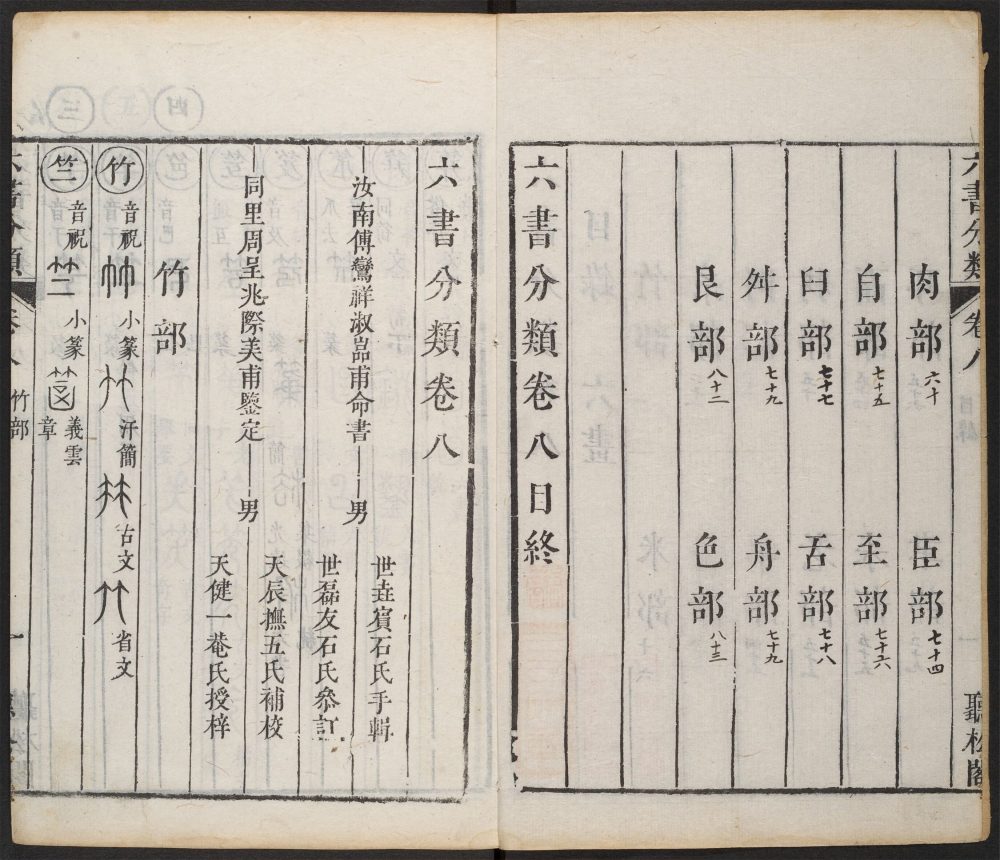 六書分類 卷八
聽松閣
肉部 六十
臣部 七十四
自部 七十五
至部 七十六
臼部 七十七
舌部 七十八
舛部 七十九
舟部 七十九
艮部 八十二
色部 八十三
六書分類卷八目終
六書分類卷八
汝南傅鸞祥淑喦甫命書 男
世垚賓石氏手輯
世磊友石氏參訂
同里周呈兆際美甫鑒定 男
天辰撫五氏補校
天健一菴氏授梓
竹部
竹 音祝 小篆 汗簡 古文 省文
竺 音祝 小篆 義雲章
六書分類 卷八 竹部 一